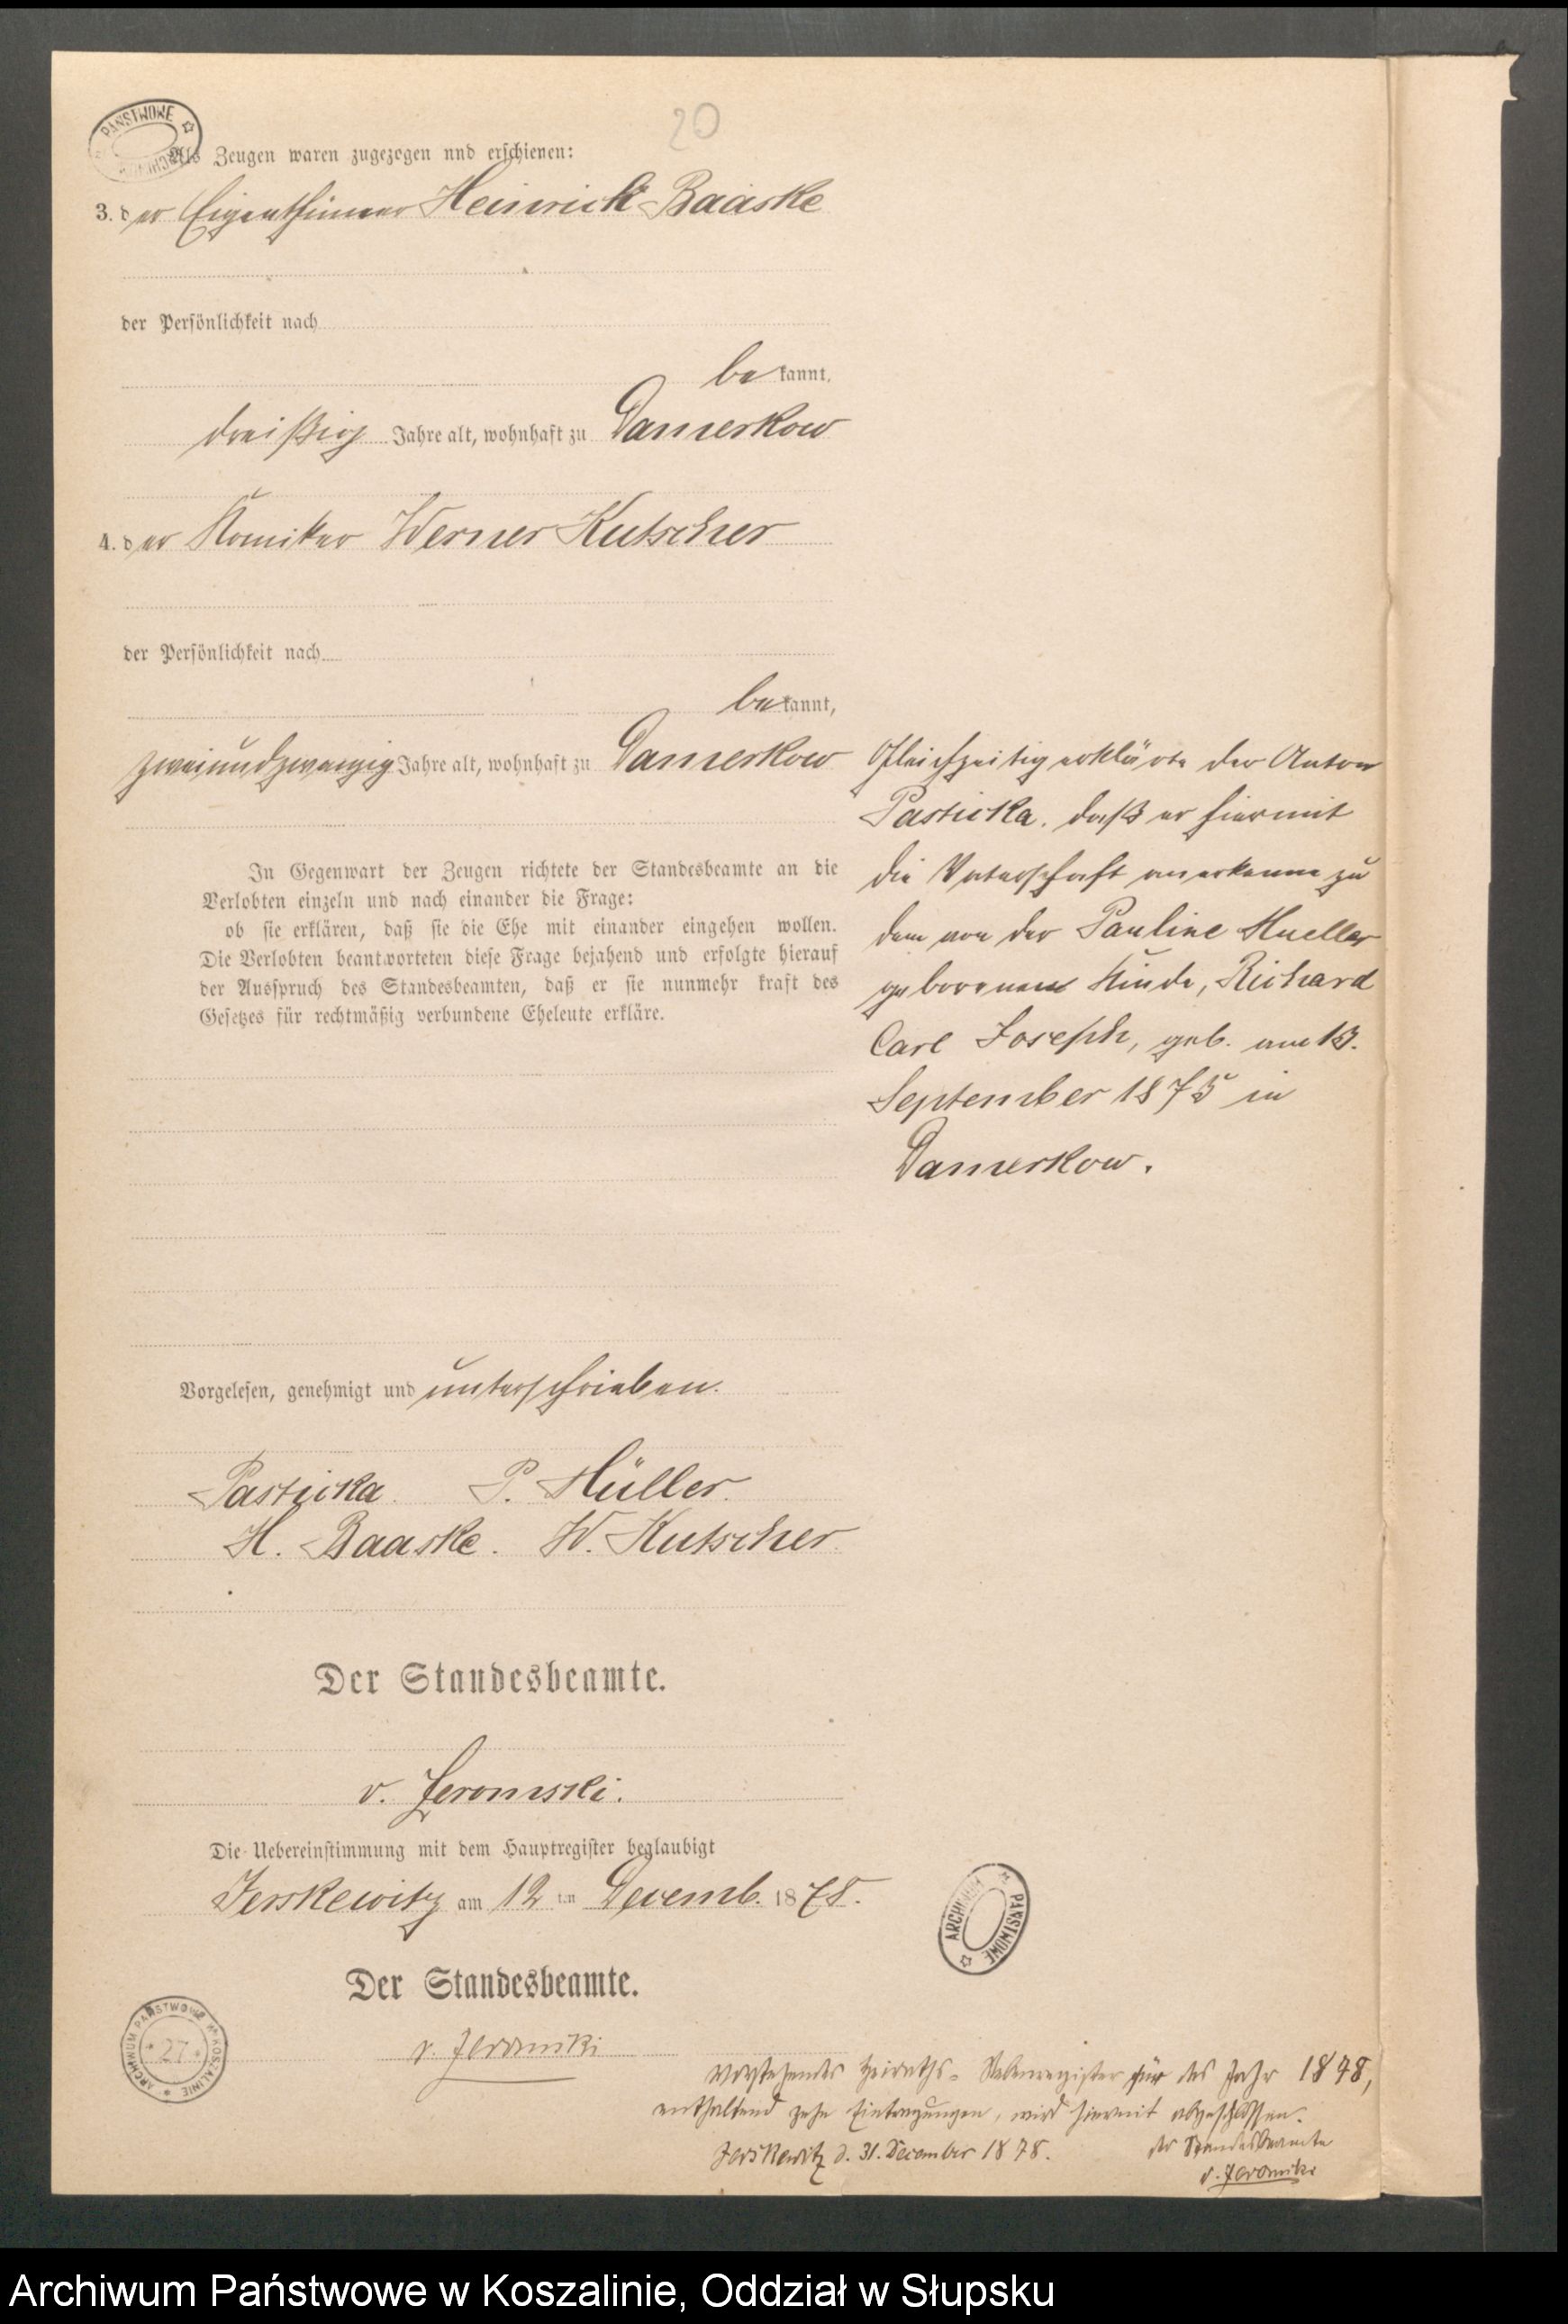 20
Als Zeugen waren zugezogen nnd erschienen:
3. der Eigenthümer Heinrich Baaske
der Persönlichkeit nach
bekannt,
dreißig Jahre alt, wohnhaft zu Damerkow
4. der Komiker Werner Kutscher
der Persönlichkeit nach
bekannt,
zweiundzwanzig Jahre alt, wohnhaft zu Damerkow
In Gegenwart der Zeugen richtete der Standesbeamte an die
Verlobten einzeln und nach einander die Frage:
ob sie erklären, daß sie die Ehe mit einander eingehen wollen.
Die Verlobten beantworteten diese Frage bejahend und erfolgte hierauf
der Ausspruch des Standesbeamten, daß er sie nunmehr kraft des
Gesetzes für rechtmäßig verbundene Eheleute erkläre.
Gleichzeitig erklärte der Anton
Pasticka, daß er hiermit
die Vaterschaft anerkenne zu
dem von der Pauline Mueller
geborenen Kinde, Richard
Carl Joseph, geb. am 13.
September 1875 in
Damerkow.
Vorgelesen, genehmigt und unterschrieben.
Pasticka. P. Müller.
H. Baaske. W. Kutscher.
Der Standesbeamte.
v. Jeromski.
Die Uebereinstimmung mit dem Hauptregister beglaubigt
Jerskewitz am 12 ten Decemb. 1878.
Der Standesbeamte.
v. Jeromski
Vorstehendes Heiraths-Nebenregister für das Jahr 1878,
enthaltend zehn Eintragungen, wird hiermit abgeschlossen.
Jerskewitz d. 31. December 1878. der Standesbeamte
v. Jeromski
PAŃSTWOWE ARCHIWUM
ARCHIWUM PAŃSTWOWE
ARCHIWUM PAŃSTWOWE W KOSZALINIE
* 27 *
Archiwum Państwowe w Koszalinie, Oddział w Słupsku